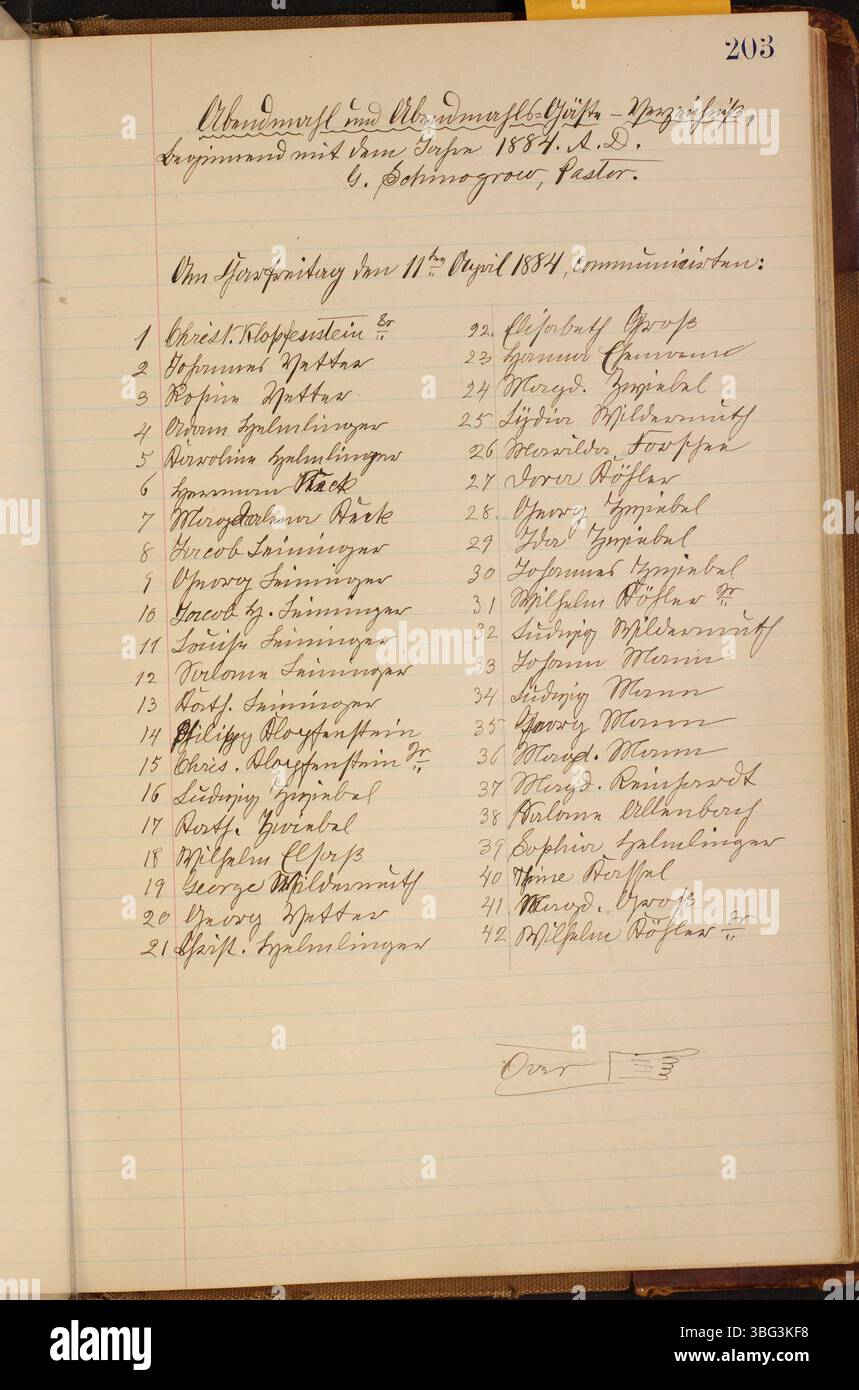 203
Abendmahl und Abendmahls-Gäste-Verzeichniß,
beginnend mit dem Jahre 1884. A. D.
G. Schmogrow, Pastor.
Am Charfreitag den 11ten April 1884, communicirten:
1 Christ. Klopfenstein Sr
2 Johannes Vetter
3 Rosine Vetter
4 Adam Helmlinger
5 Karoline Helmlinger
6 Herman Kuck
7 Magdalena Kuck
8 Jacob Leininger
9 Georg Leininger
10 Jacob H. Leininger
11 Louise Leininger
12 Salome Leininger
13 Kath. Leininger
14 Philipp Klopfenstein
15 Chris. Klopfenstein Jr
16 Ludwig Zwiebel
17 Kath. Zwiebel
18 Wilhelm Elsaß
19 George Wildermuth
20 Georg Vetter
21 Christ. Helmlinger
22. Elisabeth Groß
23 Hanna
24 Magd. Zwiebel
25 Lydia Wildermuth
26 Marilda Forschee
27 Dora Köhler
28. Georg Zwiebel
29 Ida Zwiebel
30 Johannes Zwiebel
31 Wilhelm Köhler Jr
32 Ludwig Wildermuth
33 Johann Mann
34 Ludwig Mann
35 Georg Mann
36 Magd. Mann
37 Magd. Reinhardt
38 Salome Allenbach
39 Sophia Helmlinger
40 Kassel
41. Magd. Groß
42 Wilhelm Köhler Sr
Over
alamy
alamy
Image ID: 3BG3KF8
www.alamy.com